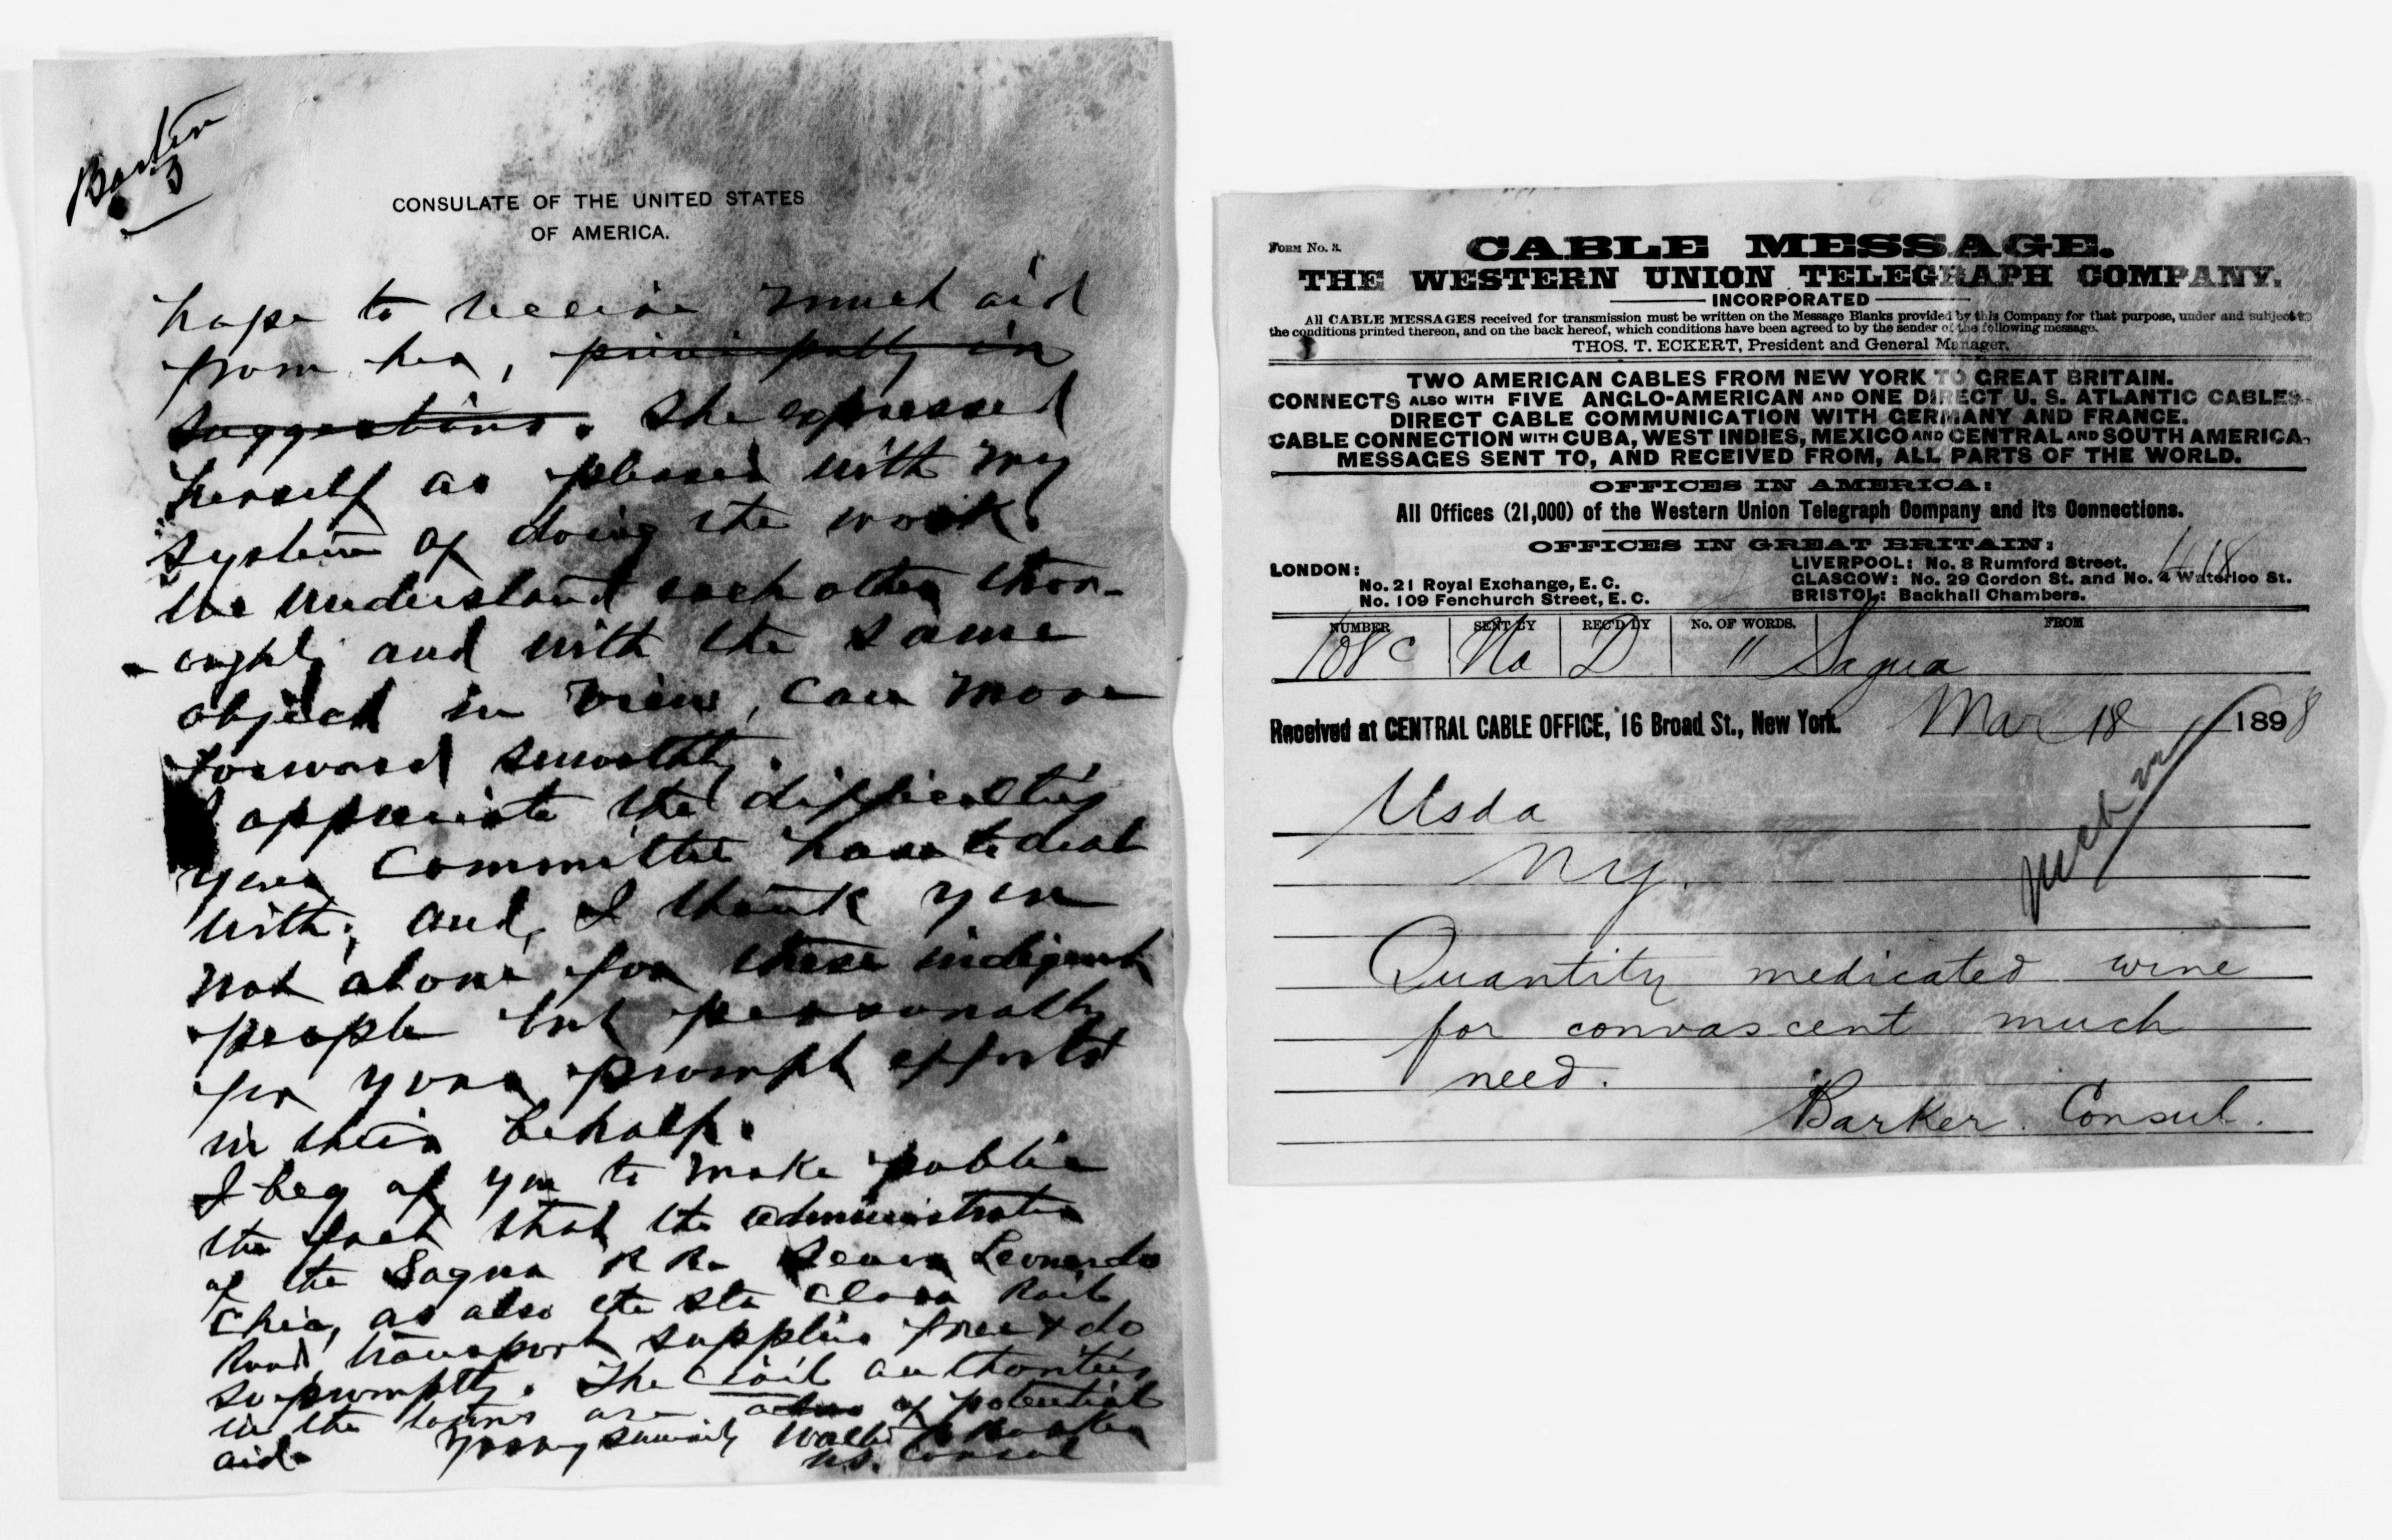 Barker
3
CONSULATE OF THE UNITED STATES
OF AMERICA.
hope to receive much aid
from her, principally in
suggestions. She expressed
herself as pleased with my
system of doing the work.
We understand each other thor-
oughly and with the same
object in view, can move
forward smoothly.
I appreciate the difficulties
your Committee have to deal
with; and, I thank you
not alone for these indigent
people but personally
for your prompt efforts
in their behalf.
I beg of you to make public
the fact that the administrator
of the Sagua R R. Senor Leonardo
Chia, as also the Sta Clara Rail
Road, transport supplies free & do
so promptly. The Civil authorities
in the towns are also of potential
aid. Yours sincerely Walter B Barker
U.S. Consul
FORM No. 3.
CABLE MESSAGE.
THE WESTERN UNION TELEGRAPH COMPANY.
INCORPORATED
All CABLE MESSAGES received for transmission must be written on the Message Blanks provided by this Company for that purpose, under and subject to
the conditions printed thereon, and on the back hereof, which conditions have been agreed to by the sender of the following message.
THOS. T. ECKERT, President and General Manager.
TWO AMERICAN CABLES FROM NEW YORK TO GREAT BRITAIN.
CONNECTS ALSO WITH FIVE ANGLO-AMERICAN AND ONE DIRECT U. S. ATLANTIC CABLES.
DIRECT CABLE COMMUNICATION WITH GERMANY AND FRANCE.
CABLE CONNECTION WITH CUBA, WEST INDIES, MEXICO AND CENTRAL AND SOUTH AMERICA.
MESSAGES SENT TO, AND RECEIVED FROM, ALL PARTS OF THE WORLD.
OFFICES IN AMERICA:
All Offices (21,000) of the Western Union Telegraph Company and its Connections.
OFFICES IN GREAT BRITAIN:
LONDON:
No. 21 Royal Exchange, E. C.
No. 109 Fenchurch Street, E. C.
LIVERPOOL: No. 8 Rumford Street.
GLASGOW: No. 29 Gordon St. and No. 4 Waterloo St.
BRISTOL: Backhall Chambers.
NUMBER SENT BY REC'D BY No. OF WORDS. FROM
108c Na D 11 Sagua
Received at CENTRAL CABLE OFFICE, 16 Broad St., New York. Mar 18 1898
Usda
Ny.
Quantity medicated wine
for convascent much
need.
Barker. Consul.